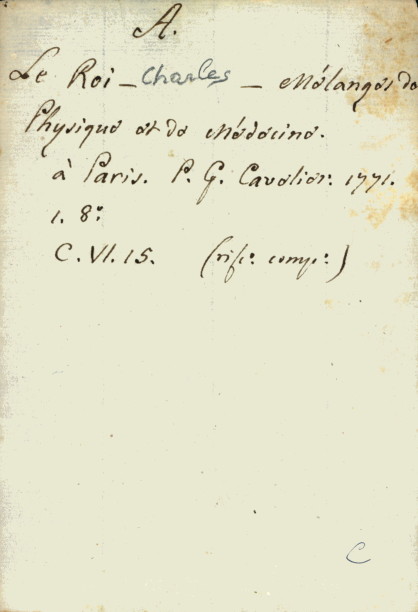 A.
Le Roi - Charles - Mélanges de
Physique et de Médecine.
à Paris. P. G. Cavelier. 1771.
1. 8.º
C. VI. 15. (risc.º comp.º)
C